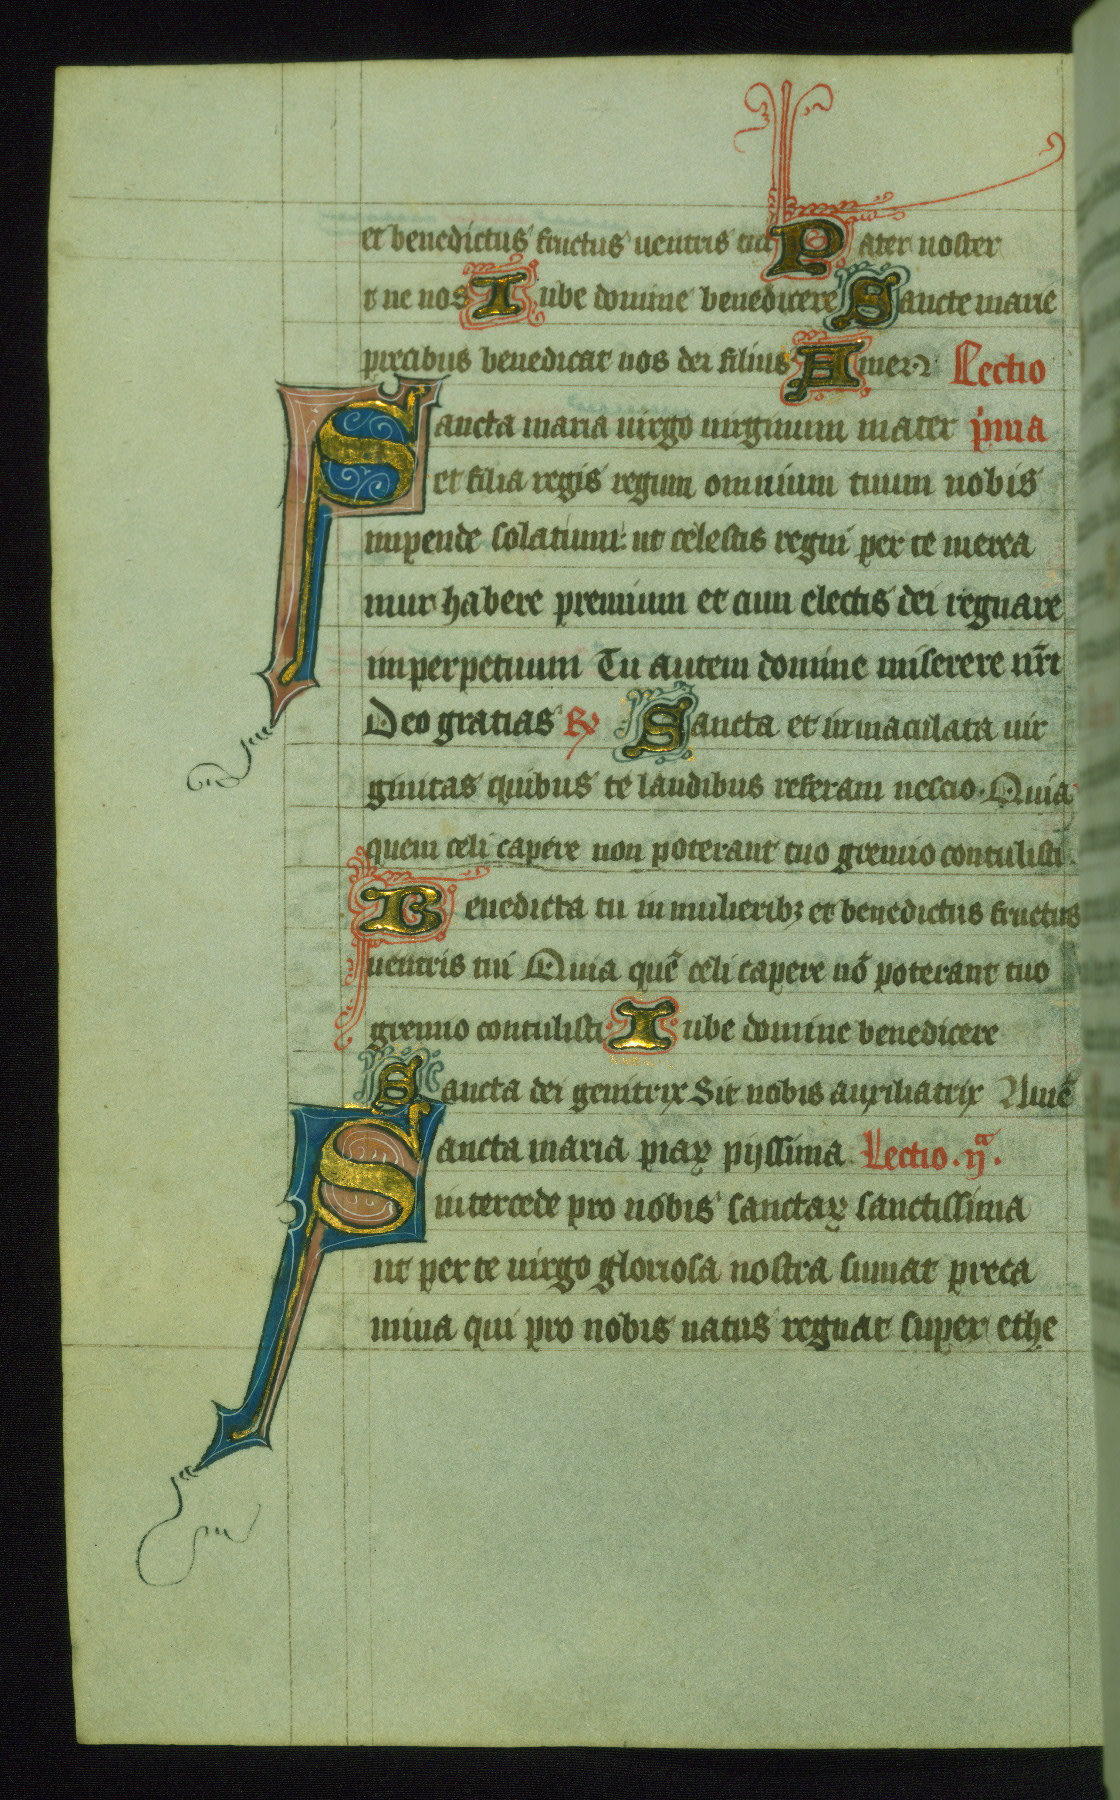 et benedictus fructus uentris tui Pater noster
t ne nos Iube domine benedicere Sancte marie
precibus benedicat nos dei filius Amen Lectio
Sancta maria uirgo uirginum mater p̾ma
et filia regis regum omnium tuum nobis
inpende solatium: ut celestis regni per te merea
mur habere premium et cum electis dei regnare
imperpetuum Tu autem domine miserere nr̄i
Deo gratias ℟ Sancta et inmaculata uir
ginitas quibus te laudibus referam nescio. Quia
quem celi capere non poterant tuo gremio contulisti.
Benedicta tu in mulieribꝫ et benedictus fructus
uentris tui Quia quē celi capere nō poterant tuo
gremio contulisti Iube domine benedicere
Sancta dei genitrix Sit nobis auxiliatrix Amē
Sancta maria piaꝝ pijssima Lectio .ijᵃ.
intercede pro nobis sanctaꝝ sanctissima
ut per te uirgo gloriosa nostra sumat preca
mina qui pro nobis natus regnat super ethe